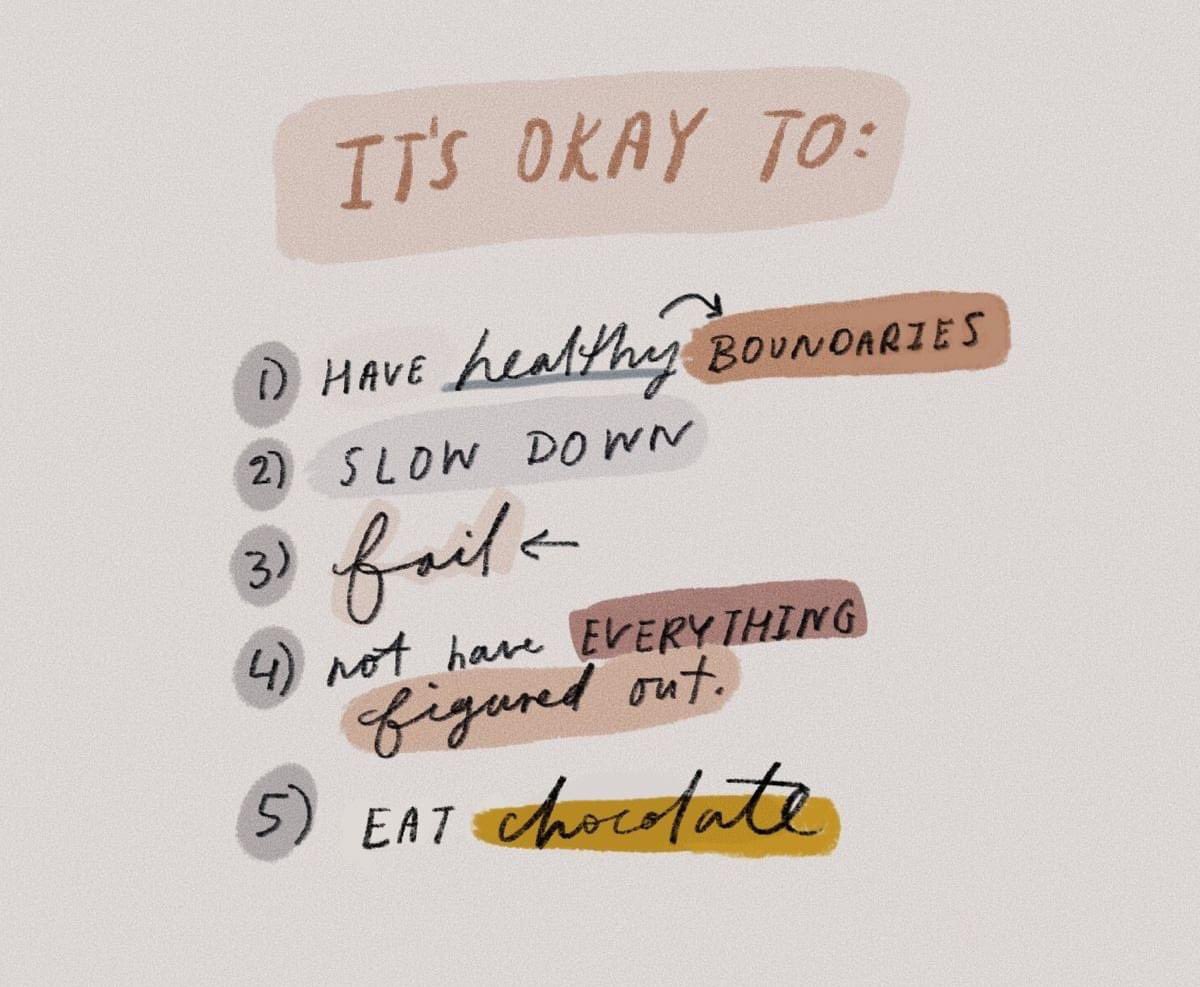 IT'S OKAY TO:
1) HAVE healthy BOUNDARIES
2) SLOW DOWN
3) fail ←
4) not have EVERYTHING
figured out.
5) EAT chocolate